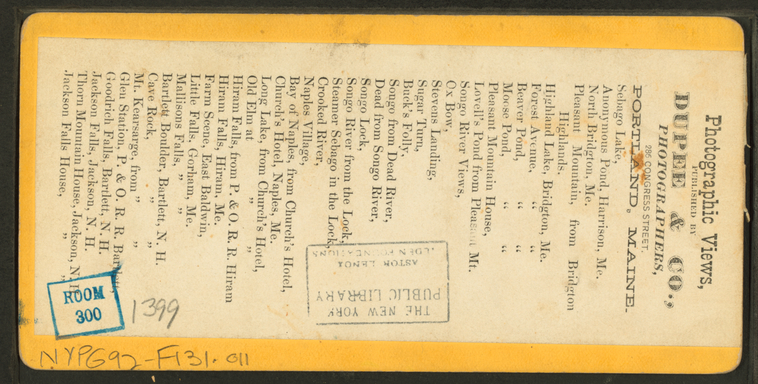 Photographic Views,
PUBLISHED BY
DUPEE & CO.,
PHOTOGRAPHERS,
286 CONGRESS STREET.
PORTLAND, MAINE.
Sebago Lake,
Anonymous Pond, Harrison, Me.
North Bridgton, Me.
Pleasant Mountain, from Bridgton
Highlands.
Highland Lake, Bridgton, Me.
Forest Avenue, " "
Beaver Pond, " "
Moose Pond, " "
Pleasant Mountain House,
Lovell's Pond from Pleasant Mt.
Songo River Views,
Ox Bow,
Stevens Landing,
Sugar Turn,
Buck's Folly,
Songo from Dead River,
Dead from Songo River,
Songo Lock,
Songo River from the Lock,
Steamer Sebago in the Lock,
Crooked River,
Naples Village,
Bay of Naples, from Church's Hotel,
Church's Hotel, Naples, Me.
Long Lake, from Church's Hotel,
Old Elm at " "
Hiram Falls, from P. & O. R. R. Hiram
Hiram Falls, Hiram, Me.
Farm Scene, East Baldwin,
Little Falls, Gorham, Me.
Mallisons Falls, " "
Bartlett Boulder, Bartlett, N. H.
Cave Rock, " "
Mt. Kearsarge, from " "
Glen Station, P. & O. R. R. Bartlett
Goodrich Falls, Bartlett, N. H.
Jackson Falls, Jackson, N. H.
Thorn Mountain House, Jackson, N. H.
Jackson Falls House, " "
THE NEW YORK
PUBLIC LIBRARY
ASTOR LENOX
TILDEN FOUNDATIONS
ROOM
300
1399
NYPG92-F131.011